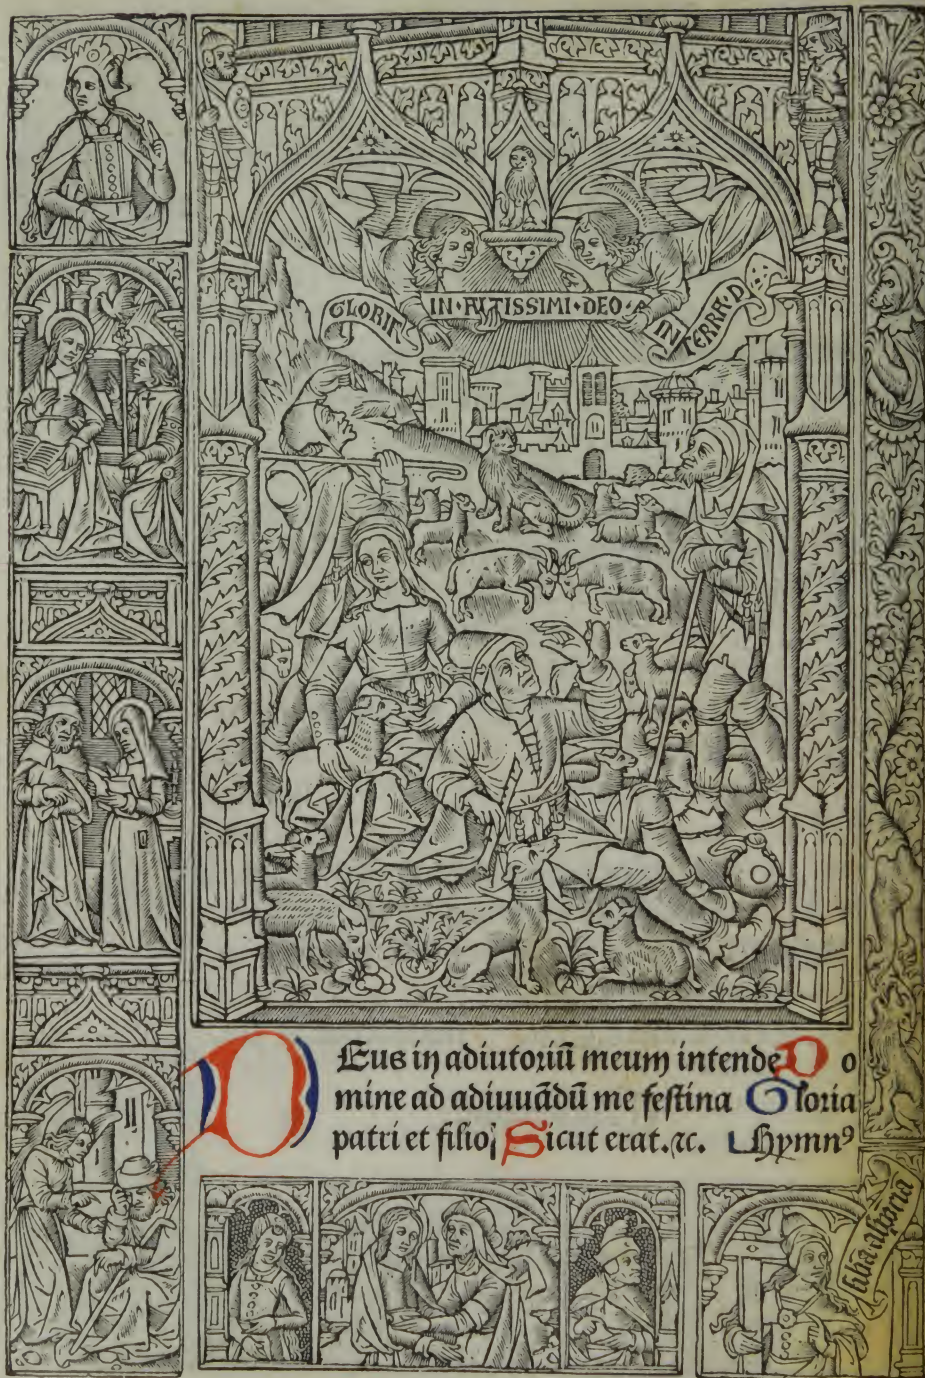 GLORIA IN·ALTISSIMI·DEO· IN TERRA·P
DEus in adiutoriū meum intende Do
mine ad adiuuādū me festina Gloria
patri et filio. Sicut erat.⁊c. Hymnꝰ